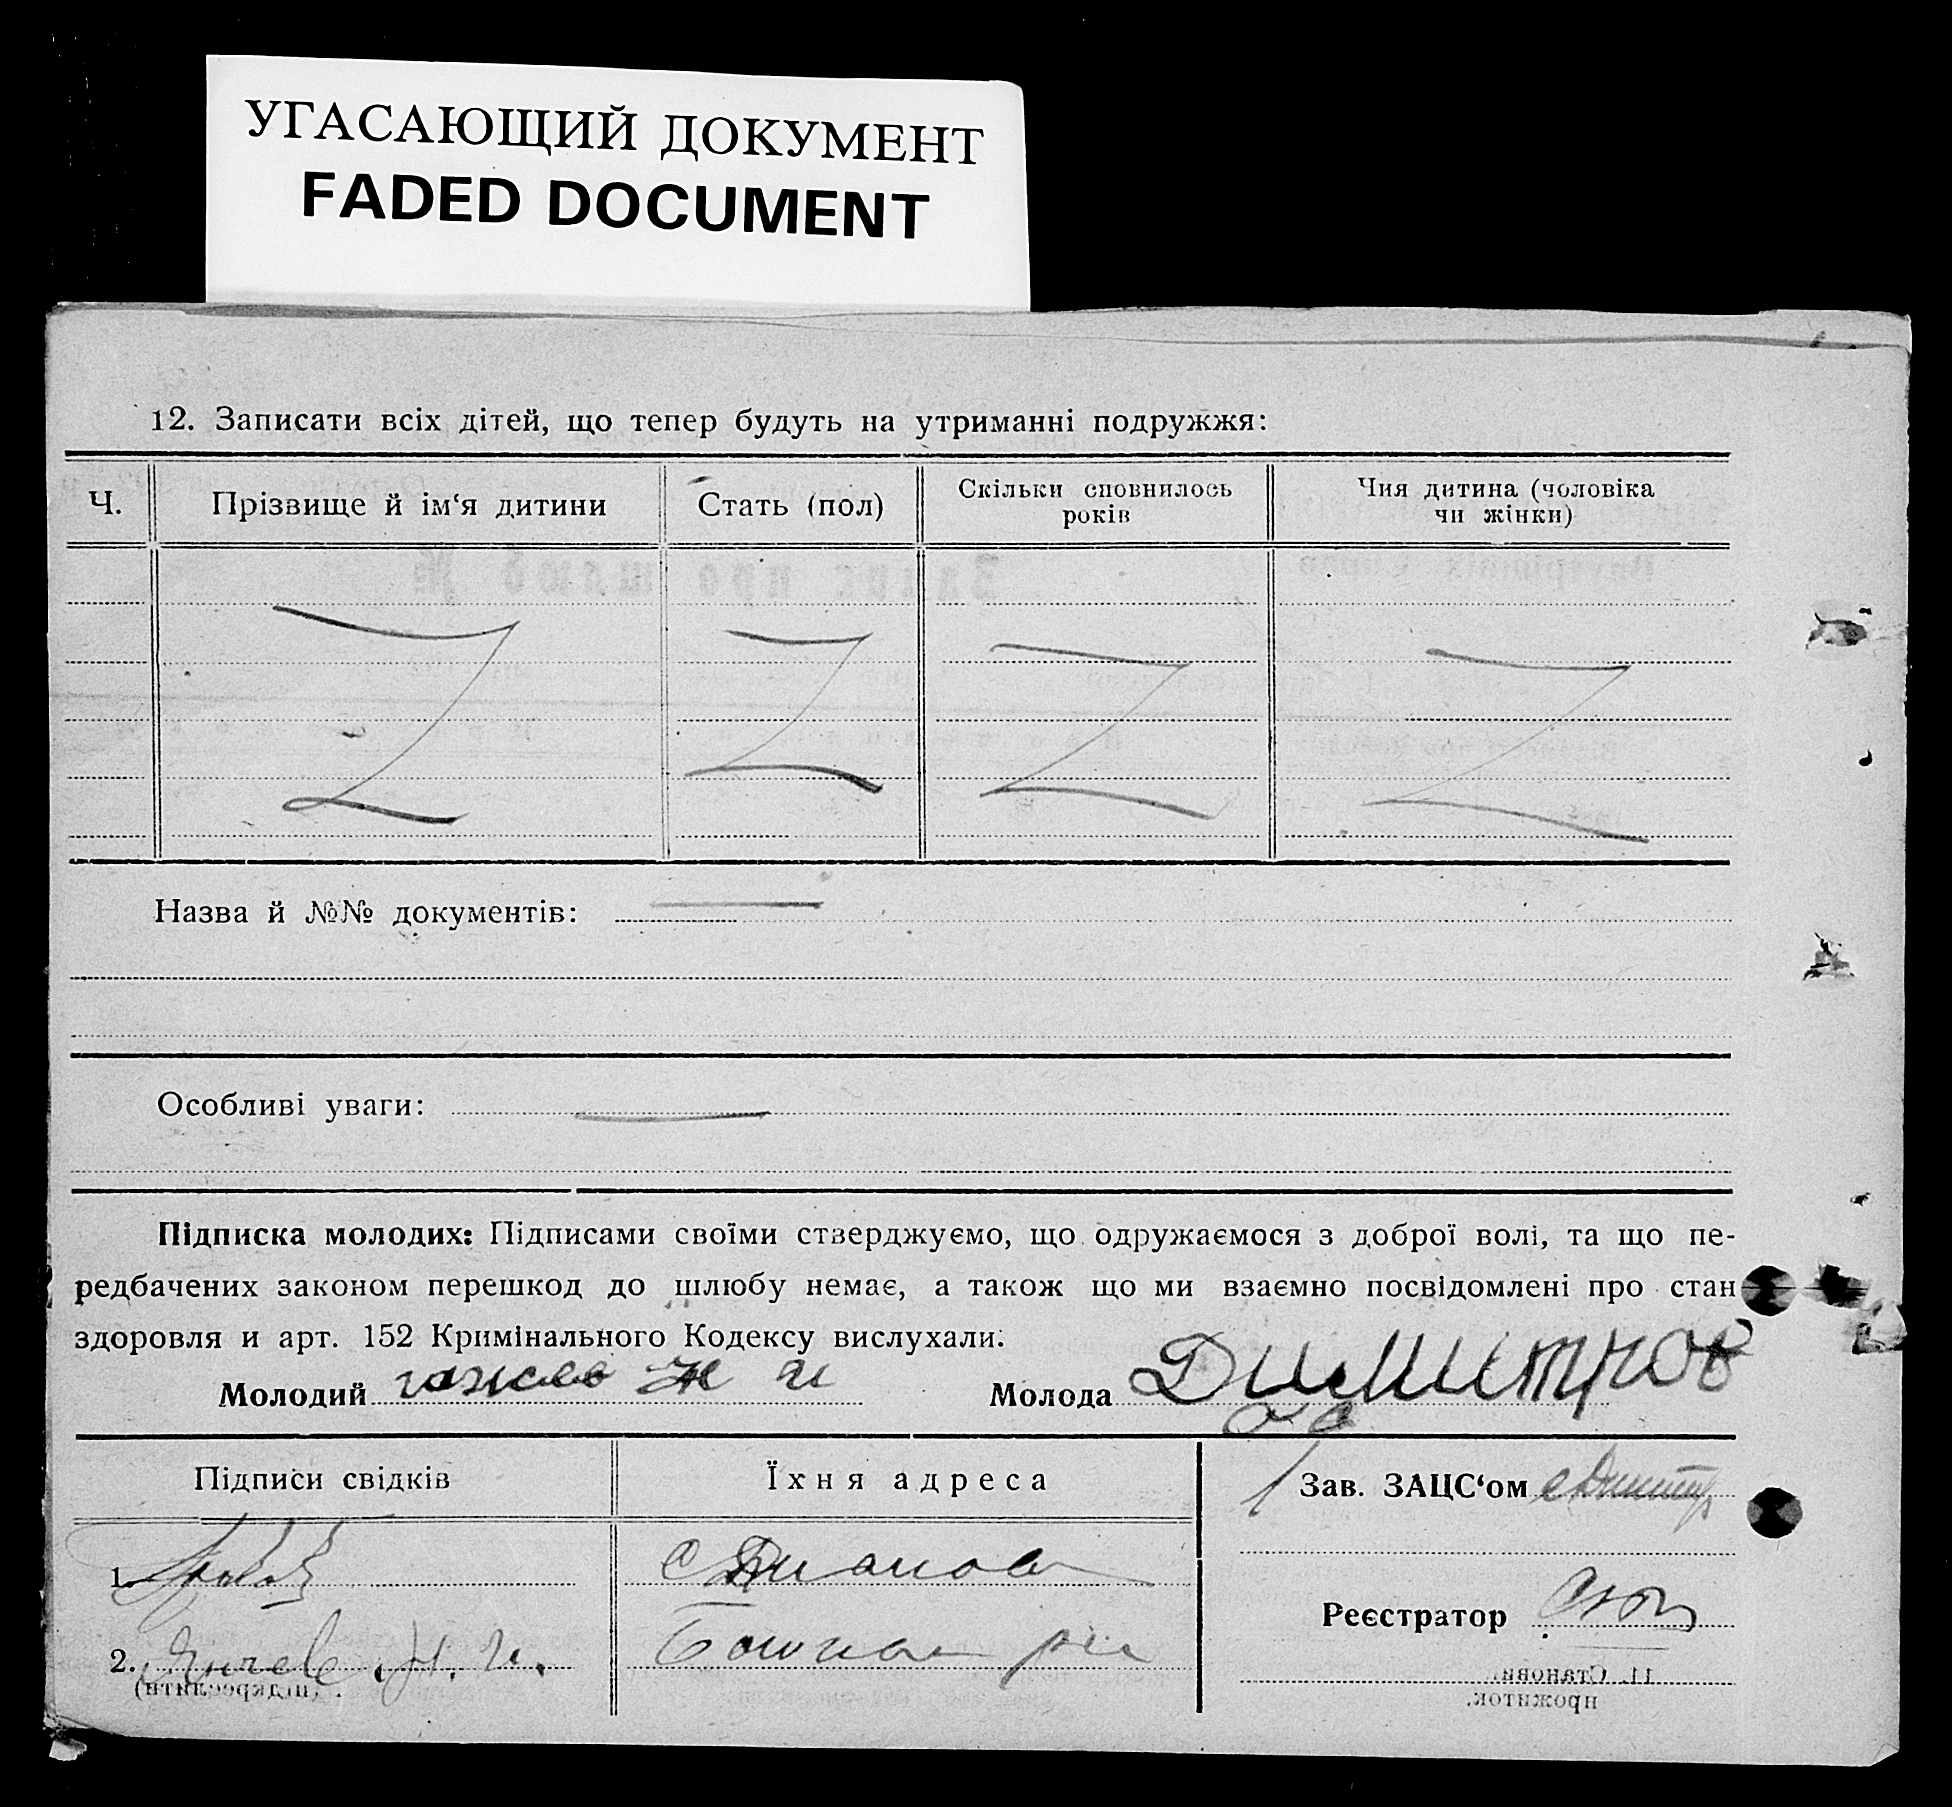 УГАСАЮЩИЙ ДОКУМЕНТ
FADED DOCUMENT
12. Записати всіх дітей, що тепер будуть на утриманні подружжя:
Ч. Прізвище й ім‘я дитини Стать (пол) Скільки сповнилось років Чия дитина (чоловіка чи жінки)
Назва й №№ документів:
Особливі уваги:
Підписка молодих: Підписами своїми стверджуємо, що одружаємося з доброї волі, та що пе-
редбачених законом перешкод до шлюбу немає, а також що ми взаємно посвідомлені про стан
здоровля и арт. 152 Кримінального Кодексу вислухали.
Молодий Молода Димитров
Підписи свідків Їхня адреса Зав. ЗАЦС‘ом
1.
Реєстратор
2. Янчев Н. И.